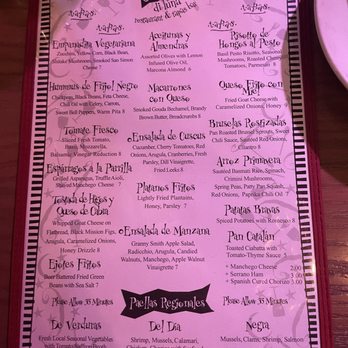 di luna
restaurant & tapas bar
Tapas
Tapas
Empanadita Vegetariana
Zucchini, Yellow Corn, Black Bean,
Shitake Mushrooms, Smoked San Simon
Cheese 7
Hummus de Frijol Negro
Chickpeas, Black Beans, Feta Cheese,
Chili Oil with Celery, Carrot,
Sweet Bell Peppers, Warm Pita 8
Tomate Fresco
Sliced Fresh Tomato,
Basil, Mozzarella,
Balsamic Vinegar Reduction 8
Esparragos a la Parrilla
Grilled Asparagus, Truffle Aioli,
Shaved Manchego Cheese 7
Tostada de Higos y
Queso de Cabra
Whipped Goat Cheese on
Flatbread, Black Mission Figs,
Arugula, Caramelized Onions,
Honey Drizzle 8
Ejotes Fritos
Beer Battered Fried Green
Beans with Sea Salt 7
Please Allow 35 Minutes
De Verduras
Fresh Local Seasonal Vegetables
Aceitunas y
Almendras
Assorted Olives with Lemon
Infused Olive Oil,
Marcona Almond 6
Macarrones
con Queso
Smoked Gouda Bechamel, Brandy
Brown Butter, Breadcrumbs 8
Ensalada de Cuscus
Cucumber, Cherry Tomatoes, Red
Onions, Arugula, Cranberries, Fresh
Parsley, Dill Vinaigrette,
Feta Cheese 7
Platanos Fritos
Lightly Fried Plantains,
Honey, Parsley 7
Ensalada de Manzana
Granny Smith Apple Salad,
Radicchio, Arugula, Candied
Walnuts, Manchego, Apple Walnut
Vinaigrette 7
Paellas Regionales
Del Día
Shrimp, Mussels, Calamari,
Risotto de
Hongos al Pesto
Basil Pesto Risotto, Sautéed
Mushrooms, Roasted Cherry
Tomatoes, Parmesan 8
Queso Frito con
Miel
Fried Goat Cheese with
Caramelized Onions, Honey
Bruselas Rostizadas
Pan Roasted Brussel Sprouts, Sweet
Chili Sauce, Smoked Sea Salt,
Cilantro 8
Arroz Primavera
Sautéed Basmati Rice, Spinach,
Crimini Mushrooms,
Spring Peas, Patty Pan Squash,
Red Onions, Paprika Chili Oil 7
Patatas Bravas
Spiced Potatoes with Romesco 8
Pan Catalán
Toasted Ciabatta with
Tomato-Thyme Sauce
+ Manchego Cheese 2.00
+ Serrano Ham
+ Spanish Cured Chorizo 3.00
Please Allow 35 Minutes
Negra
Mussels, Clams, Shrimp, Salmon